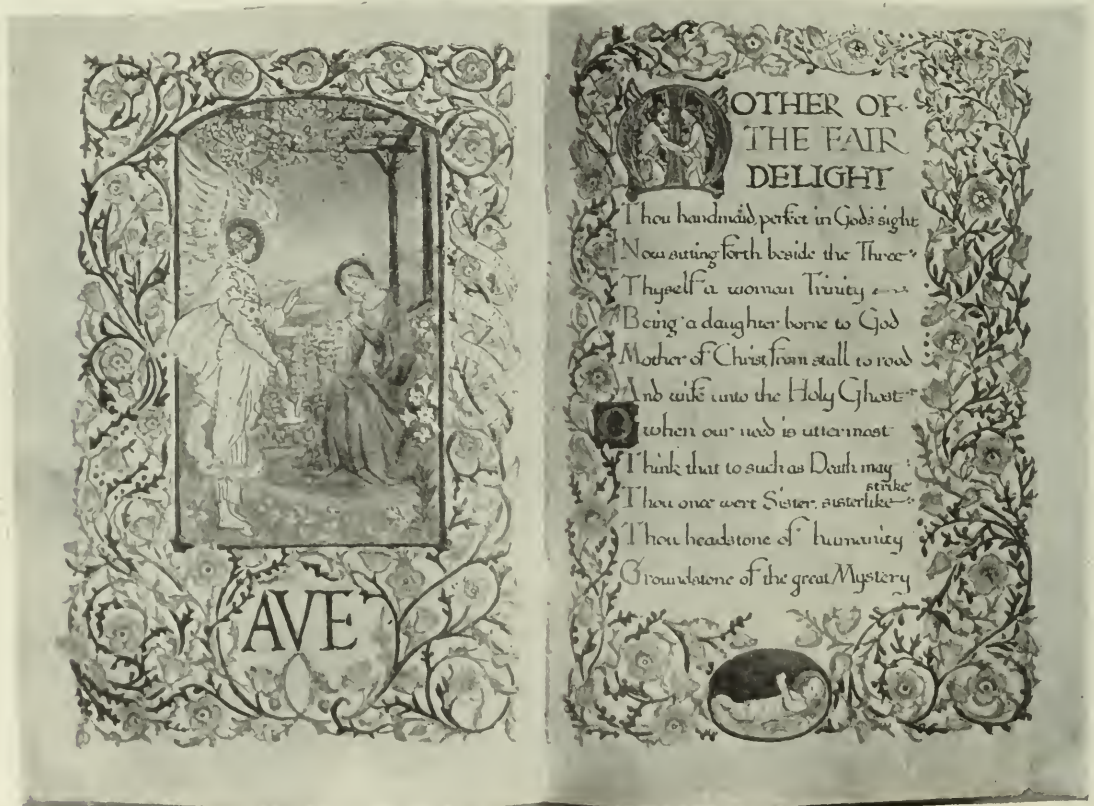 AVE
MOTHER OF
THE FAIR
DELIGHT
Thou handmaid, perfect in God's sight
Now sitting forth beside the Three
Thyself a woman Trinity
Being a daughter borne to God
Mother of Christ, from stall to rood
And wife unto the Holy Ghost
O when our need is uttermost
Think that to such as Death may strike
Thou once wert Sister, sisterlike
Thou headstone of humanity
Groundstone of the great Mystery